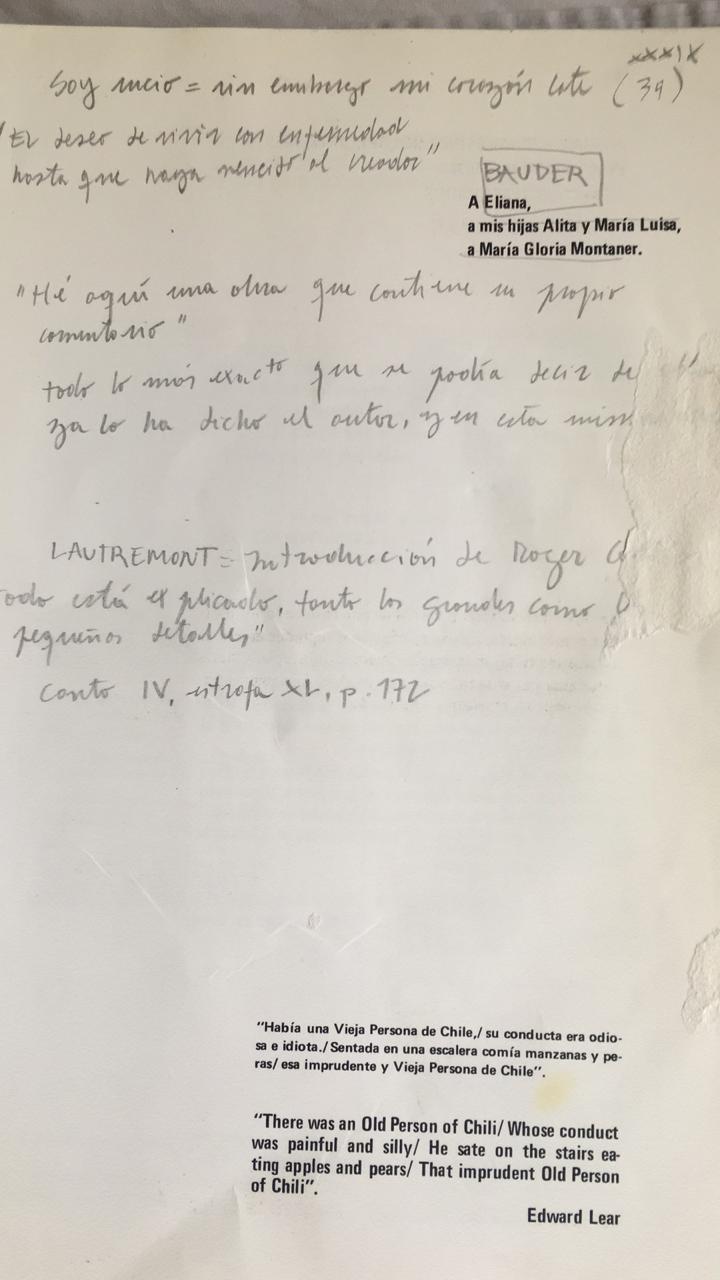 XXXIX
Soy sucio = sin embargo mi corazón late (39)
"El deseo de vivir con enfermedad
hasta que haya vencido al creador"
BAUDER
A Eliana,
a mis hijas Alita y María Luisa,
a María Gloria Montaner.
"Hé aquí una obra que contiene su propio
comentario"
todo lo más exacto que se podía decir de
ya lo ha dicho el autor, y en esta mism
LAUTREMONT = Introducción de Roger
odo está explicado, tanto los grandes como
pequeños detalles"
Canto IV, estrofa XL, p. 172
"Había una Vieja Persona de Chile,/ su conducta era odio-
sa e idiota./ Sentada en una escalera comía manzanas y pe-
ras/ esa imprudente y Vieja Persona de Chile".
"There was an Old Person of Chili/ Whose conduct
was painful and silly/ He sate on the stairs ea-
ting apples and pears/ That imprudent Old Person
of Chili".
Edward Lear